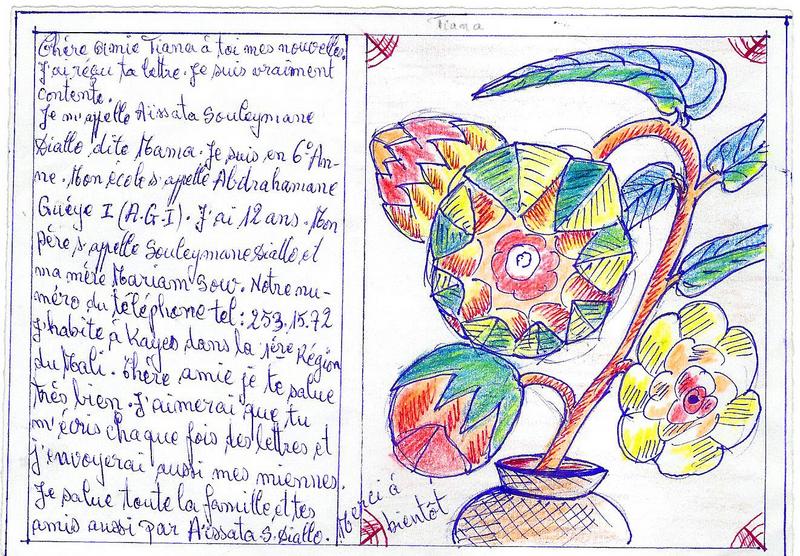 Tiana
Chère amie Tiana à toi mes nouvelles.
J'ai réçu ta lettre. Je suis vraiment
contente.
Je m'appelle Aïssata Souleymane
Diallo dite Mama. Je suis en 6° An-
ne. Mon école s'appelle Abdrahamane
Guéye I (A.G.I). J'ai 12 ans. Mon
père s'appelle Souleymane Diallo et
ma mère Mariam Sow. Notre nu-
méro du téléphone tel: 253.15.72
J'habite à Kayes dans la 1ère Région
du Mali. Chère amie je te salue
très bien. J'aimerai que tu
m'écris chaque fois des lettres et
j'envoyerai aussi mes miennes.
Je salue toute la famille et tes
amis aussi par Aïssata S. Diallo.
Merci à
bientôt